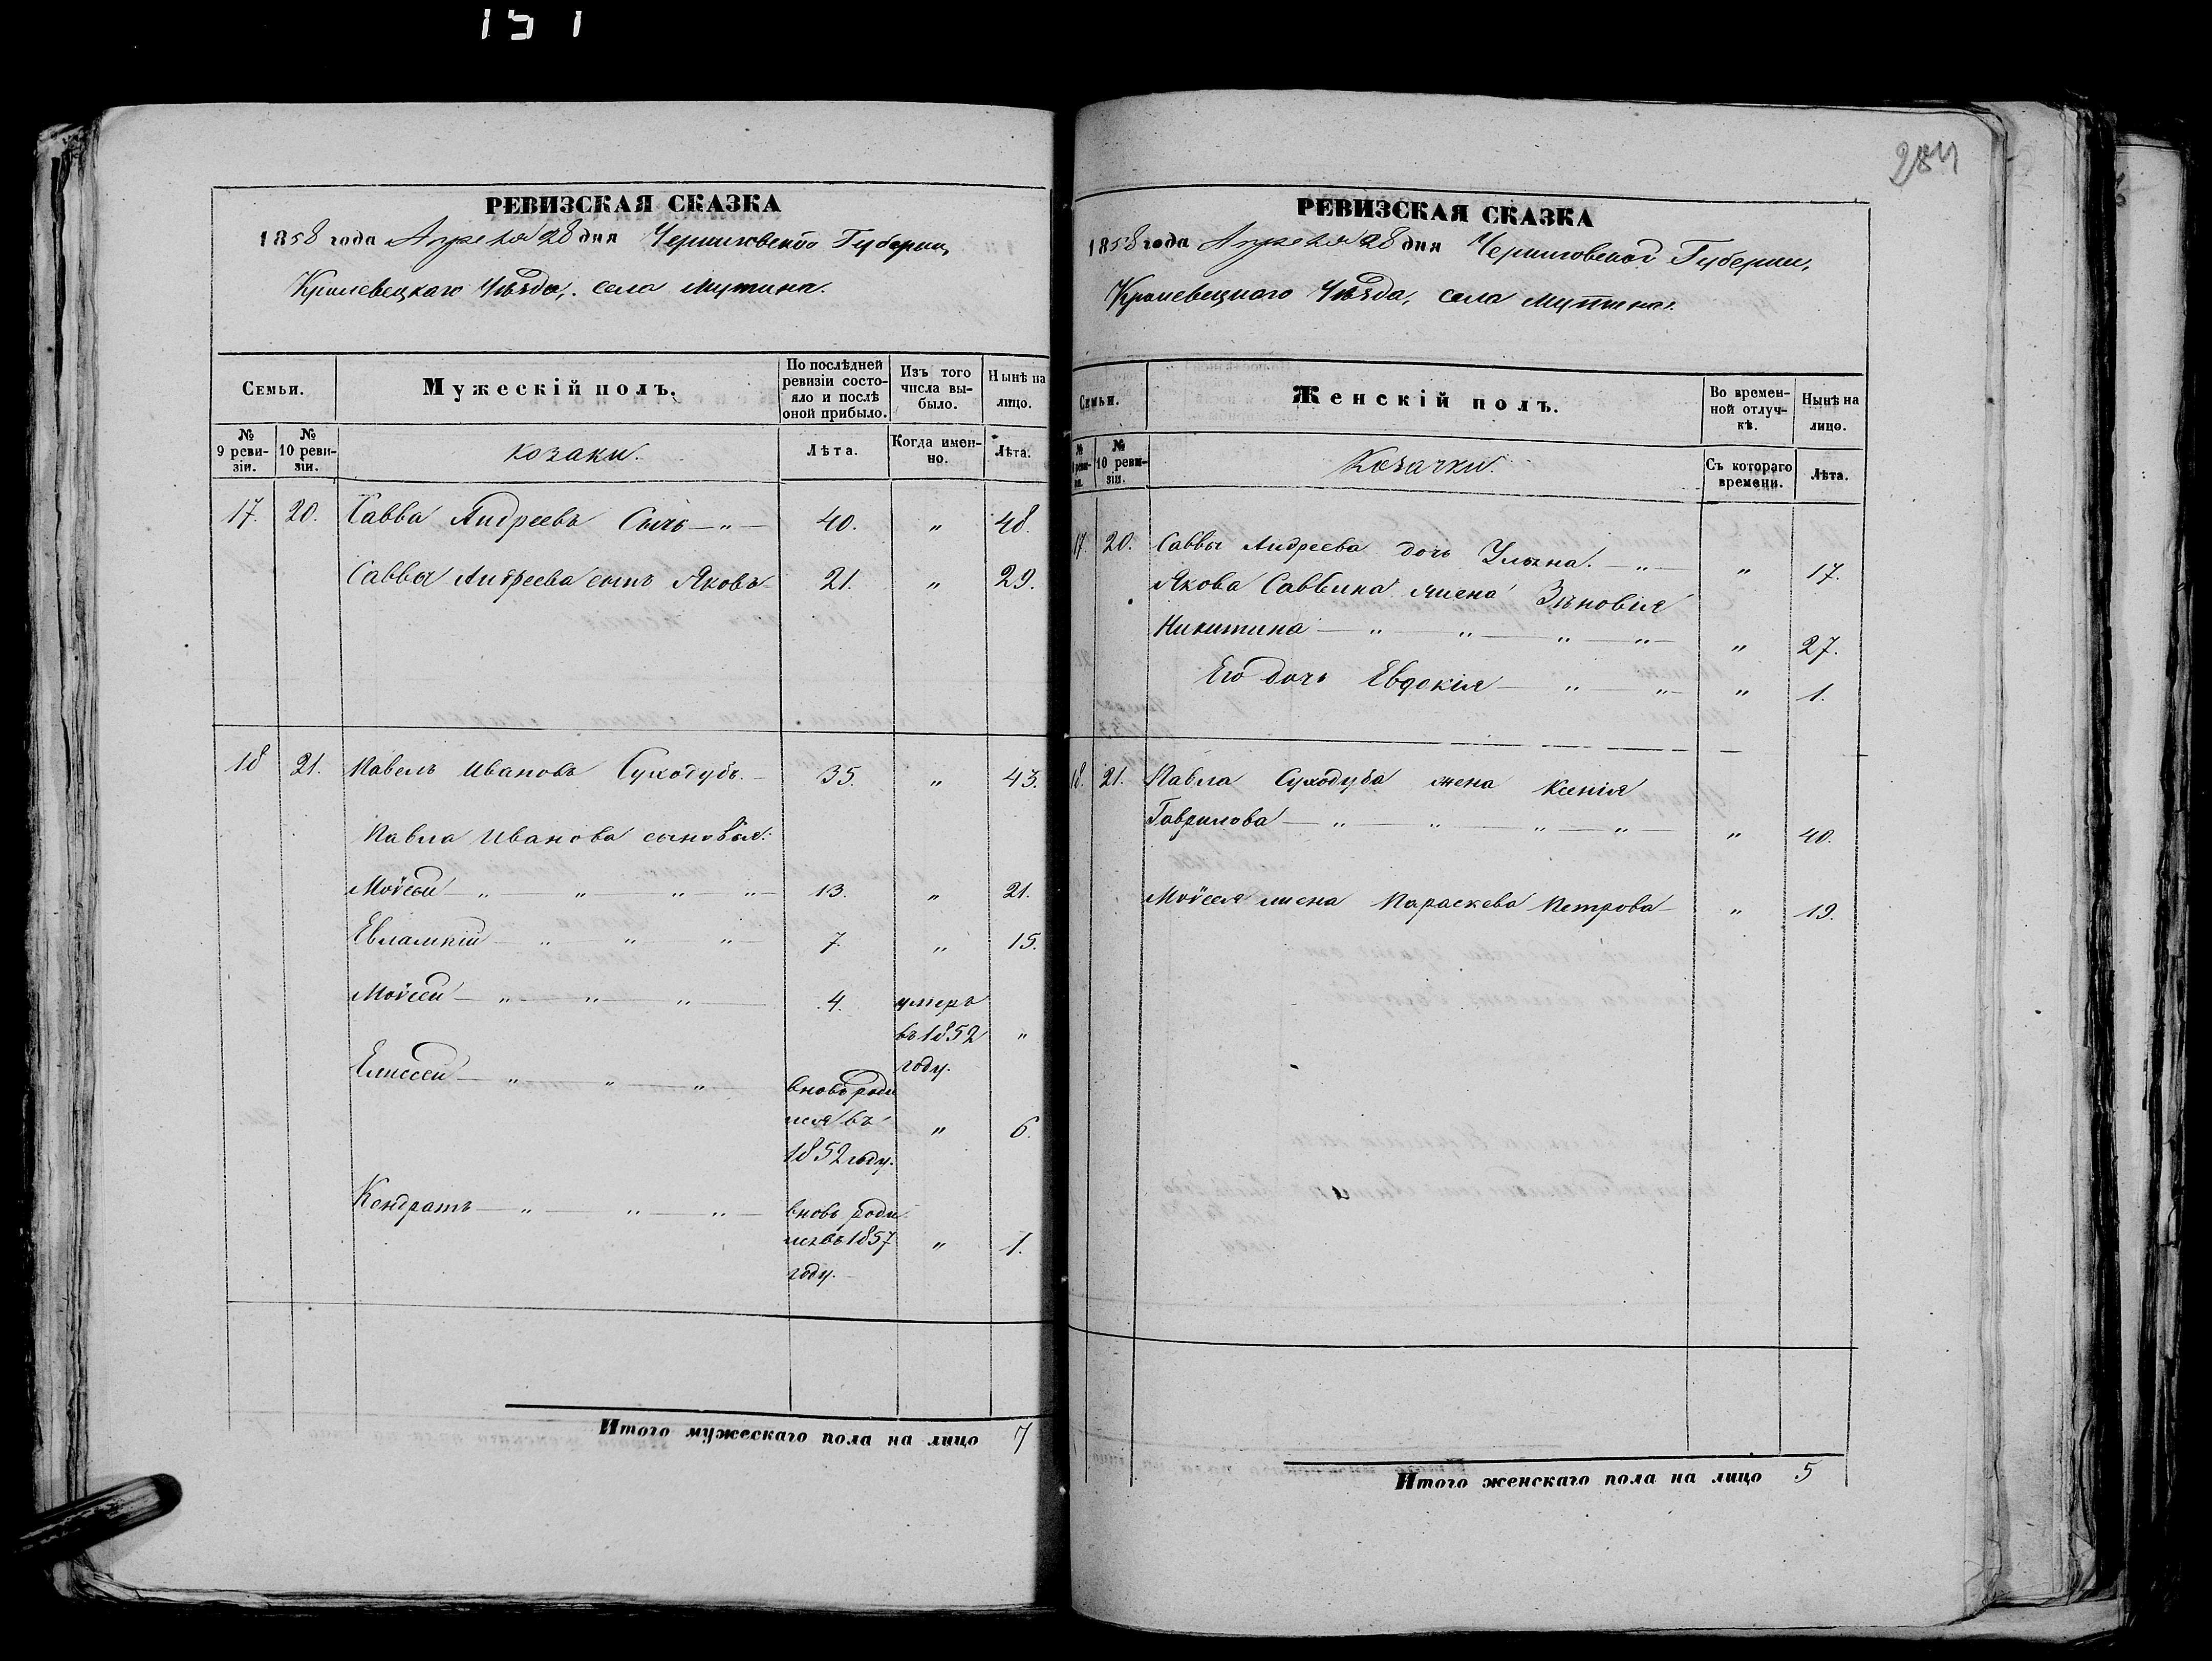 151
РЕВИЗСКАЯ СКАЗКА
1858 года Апреля 28 дня Черниговской Губернии,
Кролевецкаго Уѣзда, села Мутина.
Семьи.
Мужескій полъ.
По послѣдней ревизіи состояло и послѣ оной прибыло.
Изъ того числа выбыло.
Нынѣ на лицо.
№ 9 ревизіи.
№ 10 ревизіи.
козаки.
Лѣта.
Когда именно.
Лѣта.
17. 20. Савва Андреевъ Сычъ — „ — 40. „ 48.
Саввы Андреева сынъ Яковъ 21. „ 29.
18 21. Павелъ Ивановъ Суходубъ. — 35. „ 43.
Павла Иванова сыновья:
Моѵсей — „ — „ — „ — „ — 13. „ 21.
Евлампій — „ — „ — „ — 7. „ 15.
Моѵсей — „ — „ — „ — 4. умеръ
въ 1852 „
году.
Елисей — „ — „ — „ вновь роди
лся въ „ 6.
1852 году.
Кондратъ — „ — „ — „ — вновь роди
лся въ 1857 „ 1.
году. —
Итого мужескаго пола на лицо 7
284
РЕВИЗСКАЯ СКАЗКА
1858 года Апреля 28 дня Черниговской Губернии,
Кролевецкаго Уѣзда, села Мутина.
Семьи.
Женскій полъ.
Во временной отлучкѣ.
Нынѣ на лицо.
№ 9 ревизіи.
№ 10 ревизіи.
Козачки.
Съ котораго времени.
Лѣта.
17. 20. Саввы Андреева дочь Ульяна. — „ — „ 17.
Якова Саввина жена Зѣновія
Никитина — „ — „ — „ — „ — „ 27.
Его дочь Евдокія — „ — „ — „ 1.
18. 21. Павла Суходуба жена Ксенія
Гаврилова — „ — „ — „ — „ — „ 40.
Моѵсея жена Параскева Петрова — „ 19.
Итого женскаго пола на лицо 5